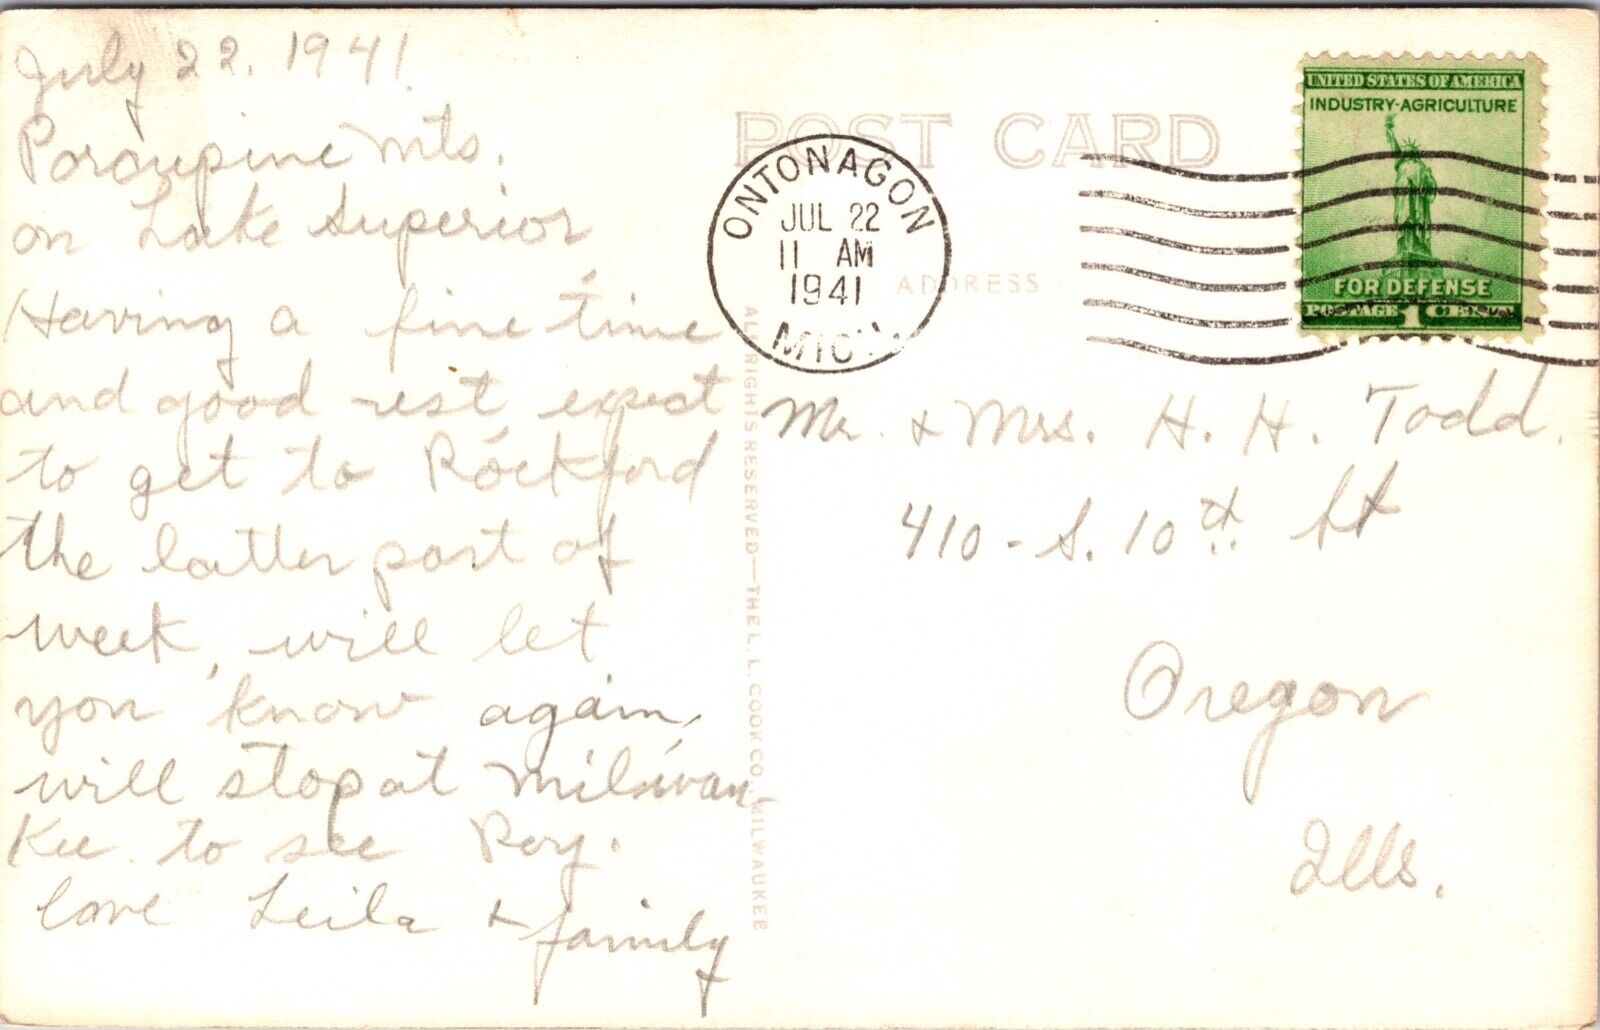 July 22, 1941.
Porcupine Mts.
on Lake Superior
Having a fine time
and good rest expect
to get to Rockford
the latter part of
week, will let
you know again,
will stop at Milwau-
kee to see Roy.
love Leila & family
POST CARD
ADDRESS
ALL RIGHTS RESERVED—THE L. L. COOK CO. MILWAUKEE
ONTONAGON
JUL 22
11 AM
1941
MICH.
UNITED STATES OF AMERICA
INDUSTRY-AGRICULTURE
FOR DEFENSE
POSTAGE 1 CENT
Mr. & Mrs. H. H. Todd.
410 - S. 10th St
Oregon
Ills.